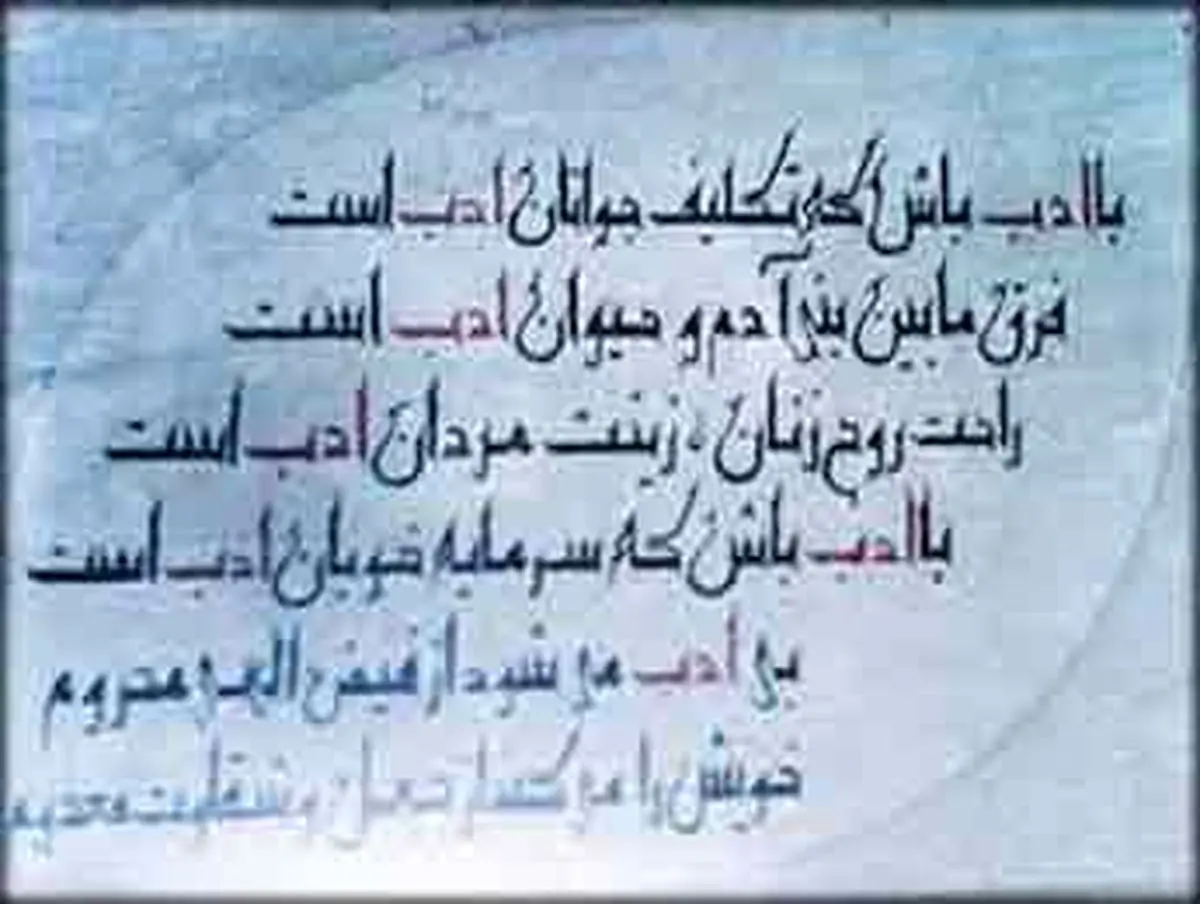 با ادب باش که تکلیف جوانان ادب است
فرق مابین بنی آدم و حیوان ادب است
راحت روح زنان، زینت مردان ادب است
با ادب باش که سرمایه خوبان ادب است
بی ادب می شود از فیض الهی محروم
خویش را می کند از جهل و شقاوت